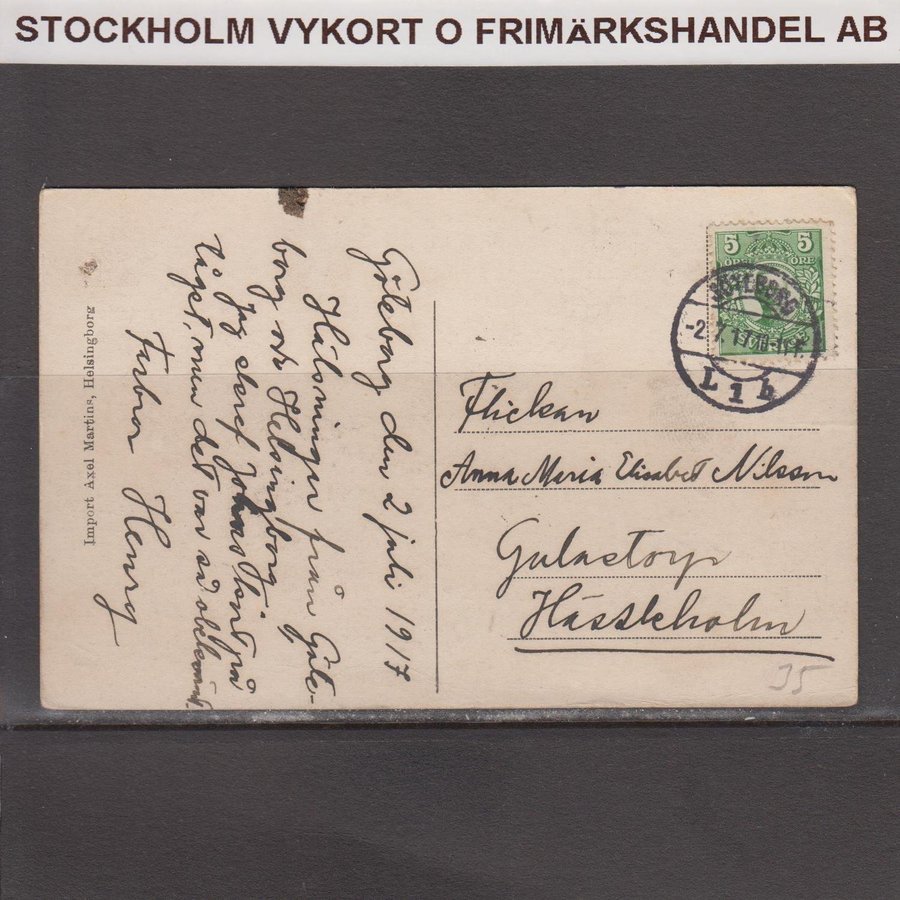 STOCKHOLM VYKORT O FRIMÄRKSHANDEL AB
Göteborg den 2 juli 1917
Hälsningar från Göte-
borg o Helsingborg
Jag skref
tåget, men det var så obekvämt.
Farbror Henry
Import Axel Martins, Helsingborg
5 5
ÖRE ÖRE
GÖTEBORG
-2.7.17
L 1 b
Flickan
Anna Maria Elisabet Nilsson
Gulastorp
Hässleholm
35